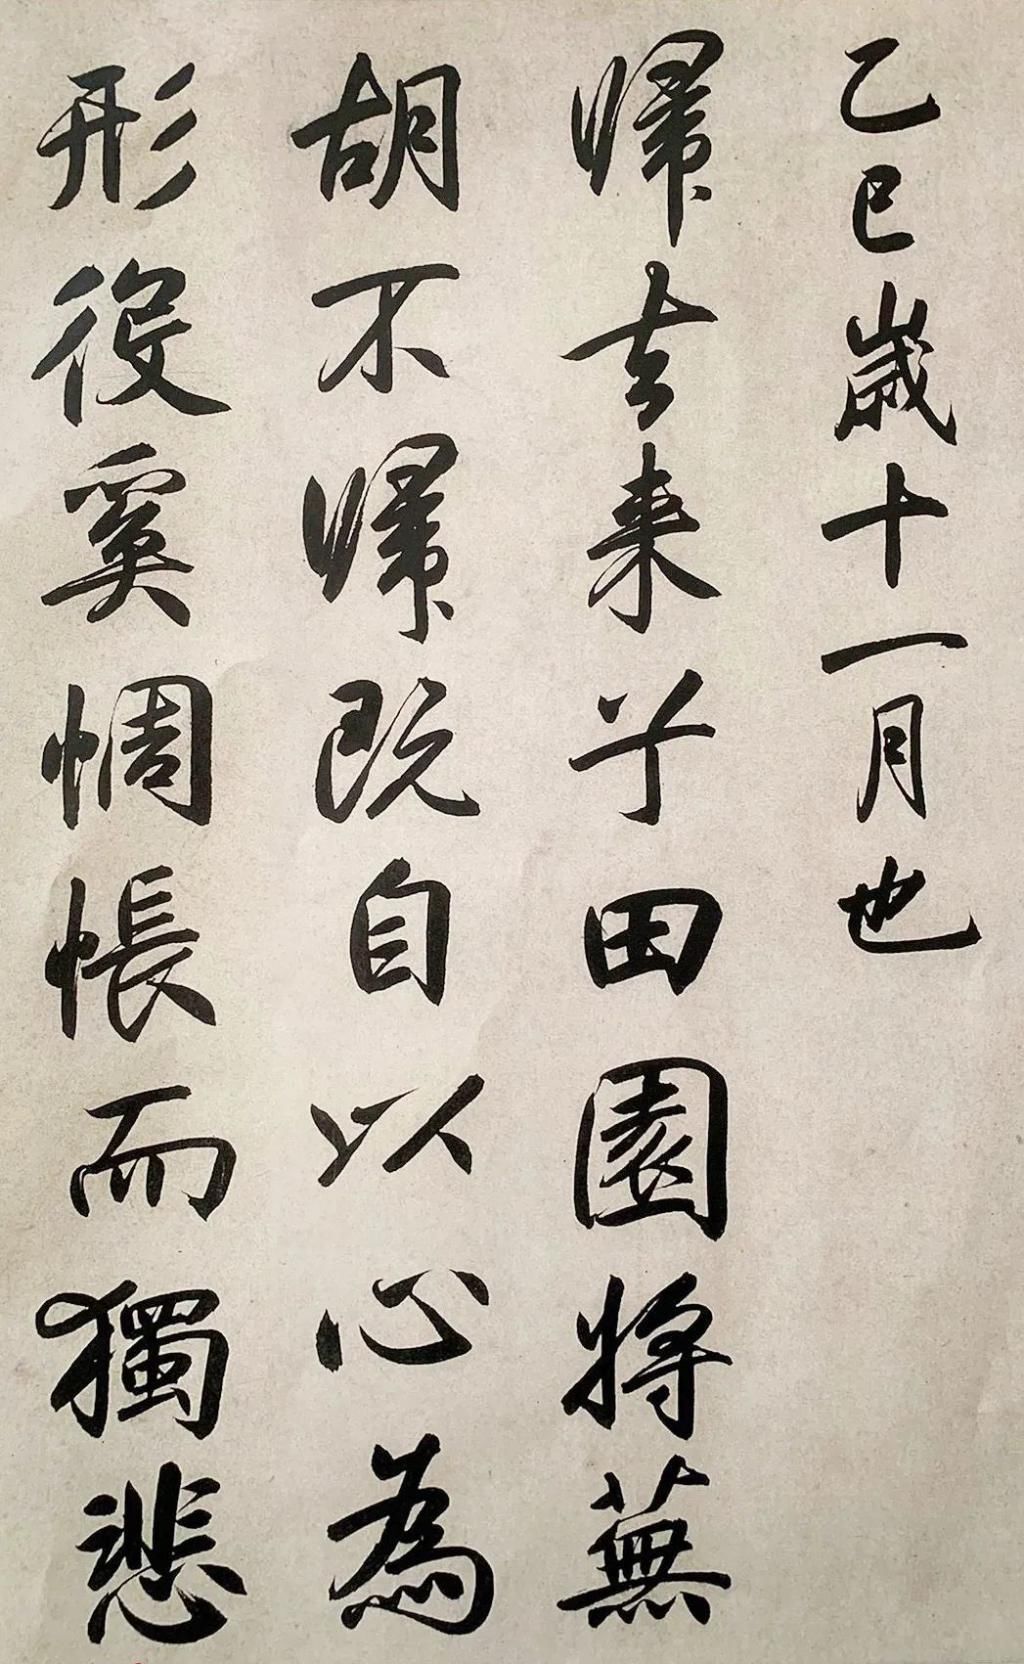 乙巳歲十一月也
歸去来乎田園将蕪
胡不歸既自以心為
形役奚惆悵而獨悲